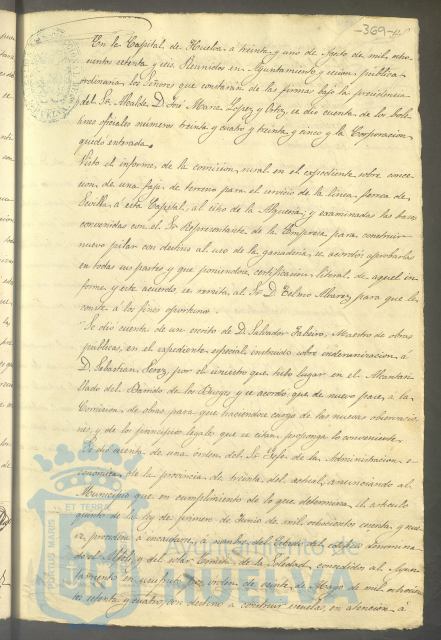 -369-
En la Capital de Huelva á treinta y uno de Agosto de mil ocho
cientos setenta y seis. Reunidos en Ayuntamiento y sesion publica
ordinaria los Señores que constarán de las firmas bajo la presidencia
del Sr. Alcalde D. José Maria Lopez y se dió cuenta de los bole
tines oficiales números treinta y cuatro y treinta y cinco y la Corporacion
quedó enterada.
Visto el informe de la comision rural en el expediente sobre conce
sion de una faja de terreno para el servicio de la linea ferrea de
Sevilla á esta Capital, al sitio de la y examinadas las bases
convenidas con el Sr. Representante de la Empresa para construir
nuevo pilar con destino al uso de la ganaderia, se acordó aprobarlas
en todas sus partes y que poniendose certificacion literal de aquel in
forme y este acuerdo, se remita al Sr. D. Telmo Alvarez para que le
conste á los fines oportunos.
Se dió cuenta de un escrito de D. Salvador Maestro de obras
publicas, en el expediente especial instruido sobre indemnizacion á
D. Sebastian Perez, por el siniestro que tubo lugar en el Alcantari
llado del de los y se acordó que de nuevo pase á la
Comision de obras, para que haciendose cargo de las nuevas observacio
nes, y de los principios legales que se citan, proponga lo conveniente.
Se dió cuenta de una órden del Sr. Jefe de la Administracion e
conomica de la provincia de treinta del actual, anunciando al
Municipio que en cumplimiento de lo que determina el articulo
quinto de la ley de primero de Junio de mil ochocientos sesenta y nue
ve, procedia á incautarse, á nombre del Estado del edificio denomina
do el y del solar Comun de la Soledad, concedidos al Ayun
tamiento en usufructo por orden de veinte de Mayo de mil ochocien
tos setenta y cuatro, con destino á construir escuelas, en atencion á
PORTUS MARIS
ET TERRÆ
Ayuntamiento de
HUELVA